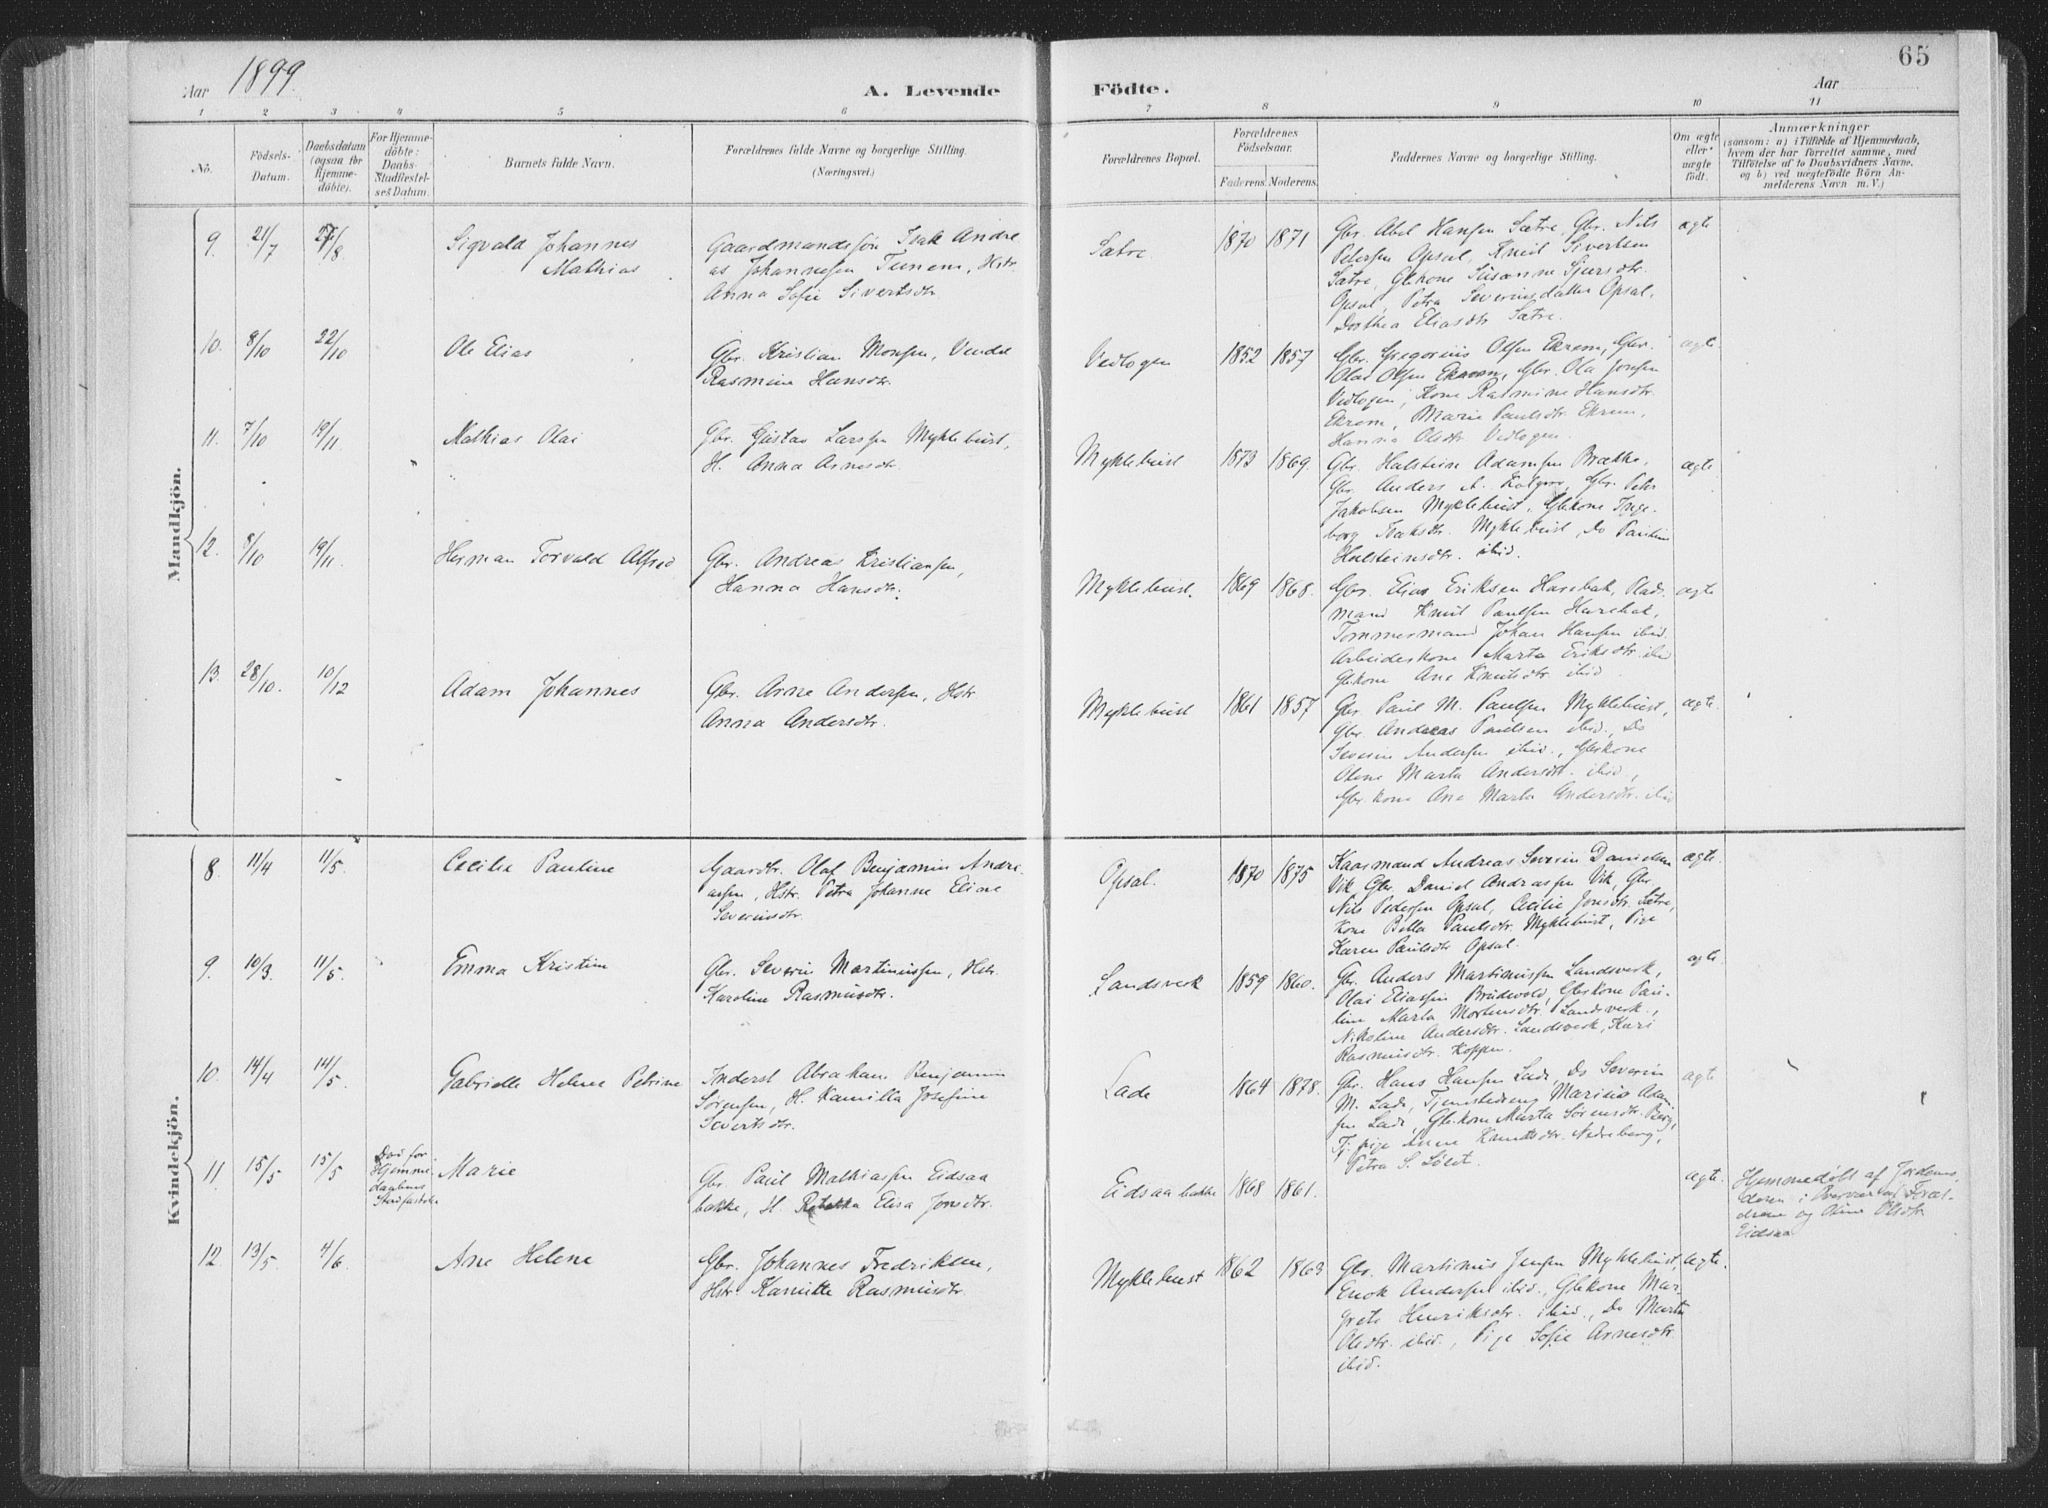 65
Aar 1899.
A. Levende
Födte.
Aar
1 2 3 4 5 6 7 8 9 10 11
No.
Födsels-
Datum.
Daabsdatum
(ogsaa for
Hjemme-
döbte).
For Hjemme-
döbte:
Daabs-
Stadfæstel-
ses Datum.
Barnets fulde Navn.
Forældrenes fulde Navne og borgerlige Stilling.
(Næringsvei.)
Forældrenes Bopæl.
Forældrenes
Födselsaar.
Faderens. Moderens.
Faddernes Navne og borgerlige Stilling.
Om ægte
eller
uægte
födt.
Anmærkninger
(saasom: a) i Tilfælde af Hjemmedaab,
hvem der har forrettet samme, med
Tilföielse af to Daabsvidners Navne,
og b) ved uægtefödte Börn An-
melderens Navn m. V.)
Mandkjön.
9. 21/7 27/8
Sigvald Johannes
Mathias
Gaardmandssøn Isak Andre
as Johannesen Tunem, Hstr.
Anna Sofie Sivertsdtr.
Sætre
1870 1871
Gbr. Abel Hansen Sætre, Gbr. Nils
Pedersen Opsal, Knut Sivertsen
Sætre, Gbkone Susanne Sjursdtr.
Opsal, Petra Severinsdatter Opsal,
Dorthea Eliasdtr. Sætre.
ægte
10. 8/10 22/10
Ole Elias
Gbr. Kristian Monsen, Vendel
Rasmine Hansdtr.
Vedlogen
1852 1857
Gbr. Gregorius Olsen Ekrem, Gbr.
Olai Olsen Ekrem, Gbr. Ola Jonsen
Vedlogen, Kone Rasmine Hansdtr.
Ekrem, Marie Paulsdtr. Ekrem,
Hanna Olsdtr. Vedlogen.
ægte
11. 7/10 19/11.
Mathias Olai
Gbr. Gustav Larssen Myklebust,
H. Anna Arnesdtr.
Myklebust
1873 1869.
Gbr. Halstein Adamsen Brække,
Gbr. Anders A. Gbr. Peter
Jakobsen Myklebust, Gbkone Inge-
borg Isaksdtr. Myklebust, Do Pauline
Halsteinsdtr. ibid.
ægte
12. 9/10 19/11.
Herman Torvald Alfred
Gbr. Andreas Kristiansen,
Hanna Hansdtr.
Myklebust.
1869 1868.
Gbr. Elias Eriksen Harebak, Plads-
mand Knut Paulsen Harebak,
Tømmermand Johan Hansen ibid.
Arbeiderkone Marta Eriksdtr. ibid
Gbkone Ane Knutsdtr. ibid.
ægte
13. 28/10. 10/12
Adam Johannes
Gbr. Arne Andersen, Hstr.
Anna Andersdtr.
Myklebust
1861 1857
Gbr. Paul M. Paulsen Myklebust,
Gbr. Andreas Paulsen ibid., Do
Severin Andersen ibid., Gbkone
Olene Marta Andersdtr. ibid.,
Gbr kone Ane Marta Andersdtr. ibid
ægte.
Kvindekjön.
8. 11/4 11/5.
Cecilie Pauline
Gaardbr. Olaf Benjamin Andre-
assen, Hstr. Petra Johanne Eliane
Severinsdtr.
Opsal.
1870 1875
Kaarmand Andreas Severin Danielsen
Vik Gbr. Daniel Andreassen Vik, Gbr.
Nils Pedersen Opsal, Cecilie Jonsdtr. Sætre,
Kone Bella Paulsdtr. Myklebust, Pige
Karen Paulsdtr Opsal.
ægte.
9. 10/3. 11/5.
Emma Kristine
Gbr. Severin Martinussen, Hstr.
Karoline Rasmusdtr.
Landsverk
1859 1860.
Gbr. Anders Martinussen Landsverk,
Olai Eliassen Brudevold, Gbrkone Pau-
line Marta Mortensdtr. Landsverk.,
Nikoline Andersdtr. Landsverk, Kari
Rasmusdtr. Koppen.
ægte
10. 14/4 14/5.
Gabrielle Helene Petrine
Inderst Abraham Benjamin
Sørensen, H. Kamilla Josefine
Sivertsdtr.
Lade
1864 1878.
Gbr. Hans Hansen Lade, Do Severin
M. Lade, Tjenestedreng Marius Adam-
sen Lade, Gbkone Marta Sørensdtr. Berg,
Tj. pige Anne Knutsdtr. Nedreberg,
Petra S. Løset.
ægte
11. 15/5 15/5
Død før
Hjemme
daabens
Stadfæstelse
Marie
Gbr. Paul Mathiassen Eidsaa
bakke, H. Rebekka Elisa Jonsdtr.
Eidsaabakke
1868 1861.
ægte.
Hjemmedøbt af Jordemo-
deren i Overvær af Foræl-
drene og Oline Olsdtr
Eidsaa
12. 13/5. 4/6.
Ane Helene
Gbr. Johannes Fredriksen,
Hstr. Rasmusdtr.
Myklebust
1862 1863
Gbr. Martinus Jensen Myklebust,
Enok Andersen ibid., Gbkone Mar-
grete Henriksdtr. ibid., Do Marte
Olsdtr. ibid., Pige Sofie Arnesdtr.
ibid.
ægte.